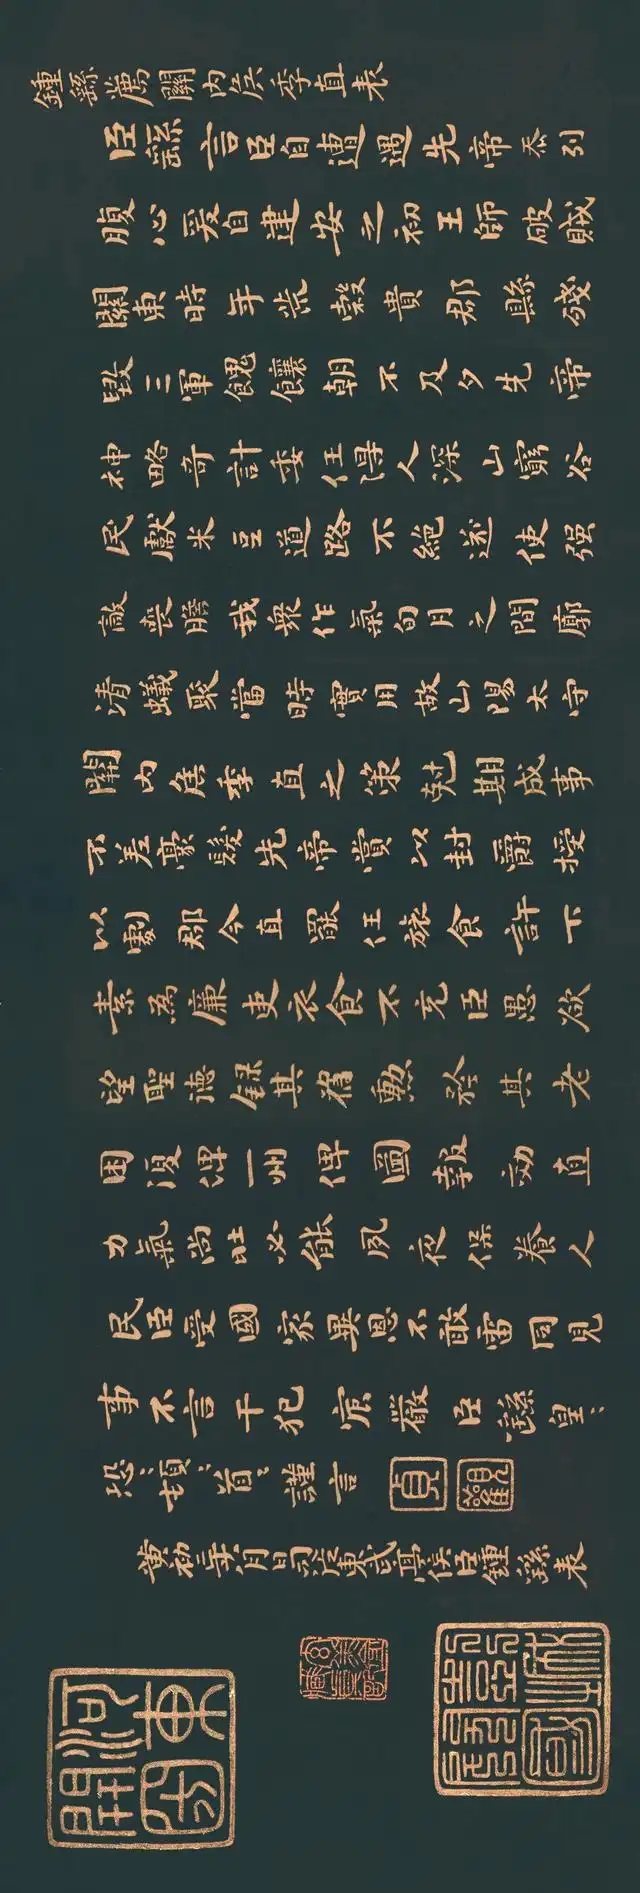 鍾繇薦關內侯季直表
臣繇言臣自遭遇先帝忝列
腹心爰自建安之初王師破賊
關東時年荒穀貴郡縣殘
毀三軍餽饟朝不及夕先帝
神略奇計委任得人深山窮谷
民獻米豆道路不絕遂使強
敵喪膽我眾作氣旬月之間廓
清蟻聚當時實用故山陽太守
關內侯季直之策剋期成事
不差豪髮先帝賞以封爵授
以劇郡今直罷任旅食許下
素為廉吏衣食不充臣愚欲
望聖德錄其舊勳矜其老
困復俾一州俾圖報效直
力氣尚壯必能夙夜保養人
民臣受國家異恩不敢雷同見
事不言干犯宸嚴臣繇皇〻
恐〻頓〻首〻謹言
貞觀
黃初二年八月日司徒東武亭侯臣鍾繇表